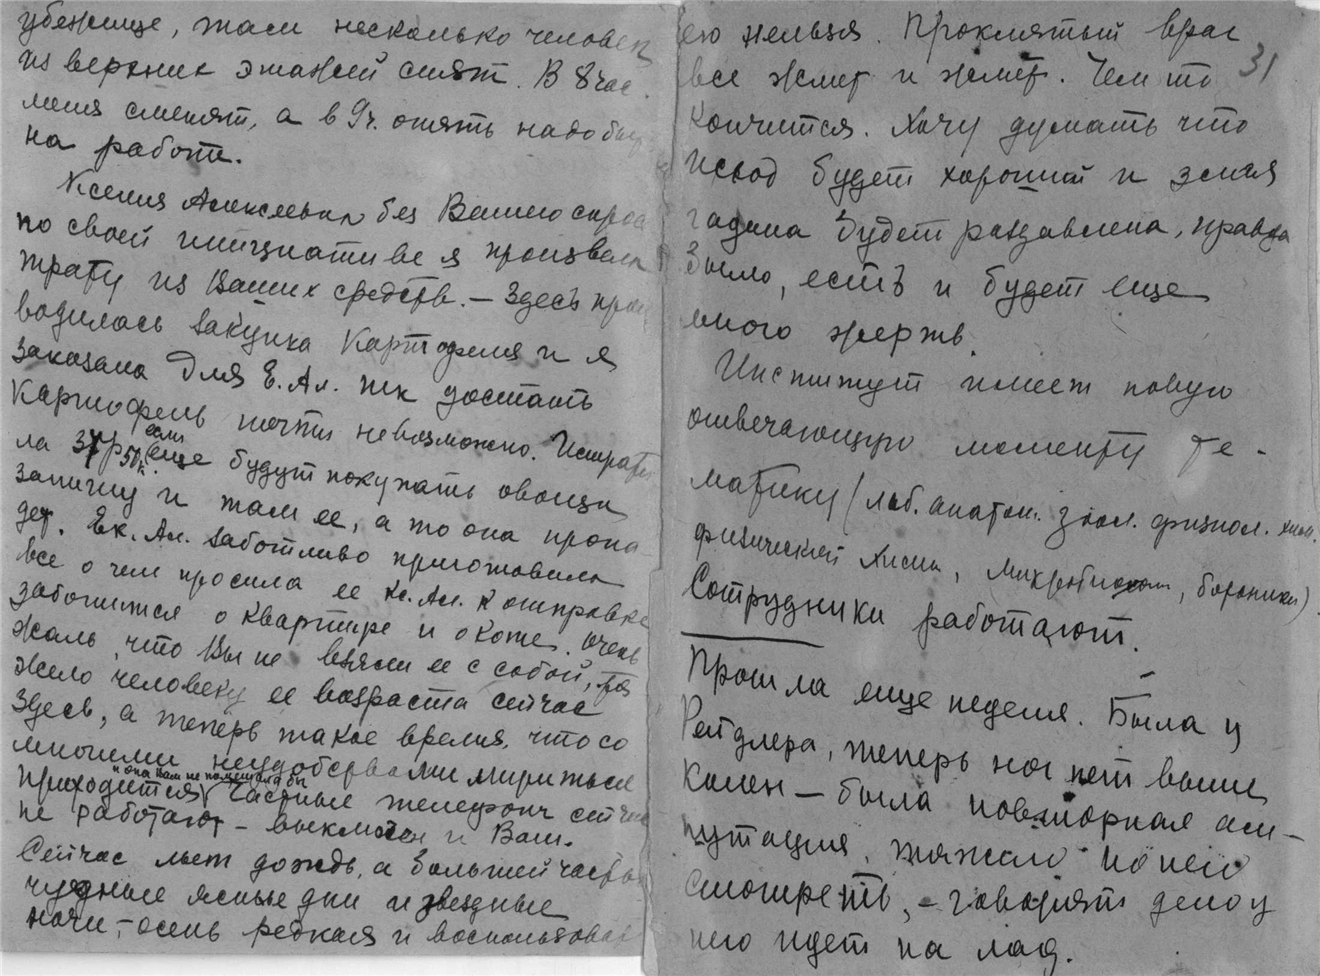 убежище, там несколько человек
из верхних этажей спят. В 8 час.
меня сменят, а в 9 ч. опять надо быть
на работе.
Ксения Алексеевна без Вашего спроса
по своей инициативе я произвела
трату из Ваших средств. – Здесь прои
водилась закупка картофеля и я
заказала для Е. Ал. тк достать
картофель почти невозможно. Истрати
ла 37 р 50 к. если еще будут покупать овощи
запишу и там ее, а то она пропа
дет. Ек. Ал. заботливо приготовила
все о чем просила ее Кс. Ал. к отправке
заботится о квартире и о Коте. Очень
жаль, что Вы не взяли ее с собой, тя
жело человеку ее возраста сейчас
здесь, а теперь такое время, что со
многими неудобствами мириться
приходится и она Вам не помешала бы
Частные телефоны сейчас
не работают – выключен и Ваш.
Сейчас льет дождь, а большей частью
чудные ясные дни и звездные
ночи, – осень редкая и воспользовать
31
ею нельзя. Проклятый враг
все жмет и жмет. Чем то
кончится. Хочу думать что
исход будет хороший и
гадина будет раздавлена, правда
было, есть и будет еще
много жертв.
Институт имеет новую
отвечающую моменту те-
матику (лаб. анатом. зоол. физиол. хим.
физической химии, микробиолог, ботаники).
Сотрудники работают.
Прошла еще неделя. Была у
Рейдлера, теперь ног нет выше
колен – была повторная ам-
путация, тяжело на него
смотреть, – говорят дело у
него идет на лад.